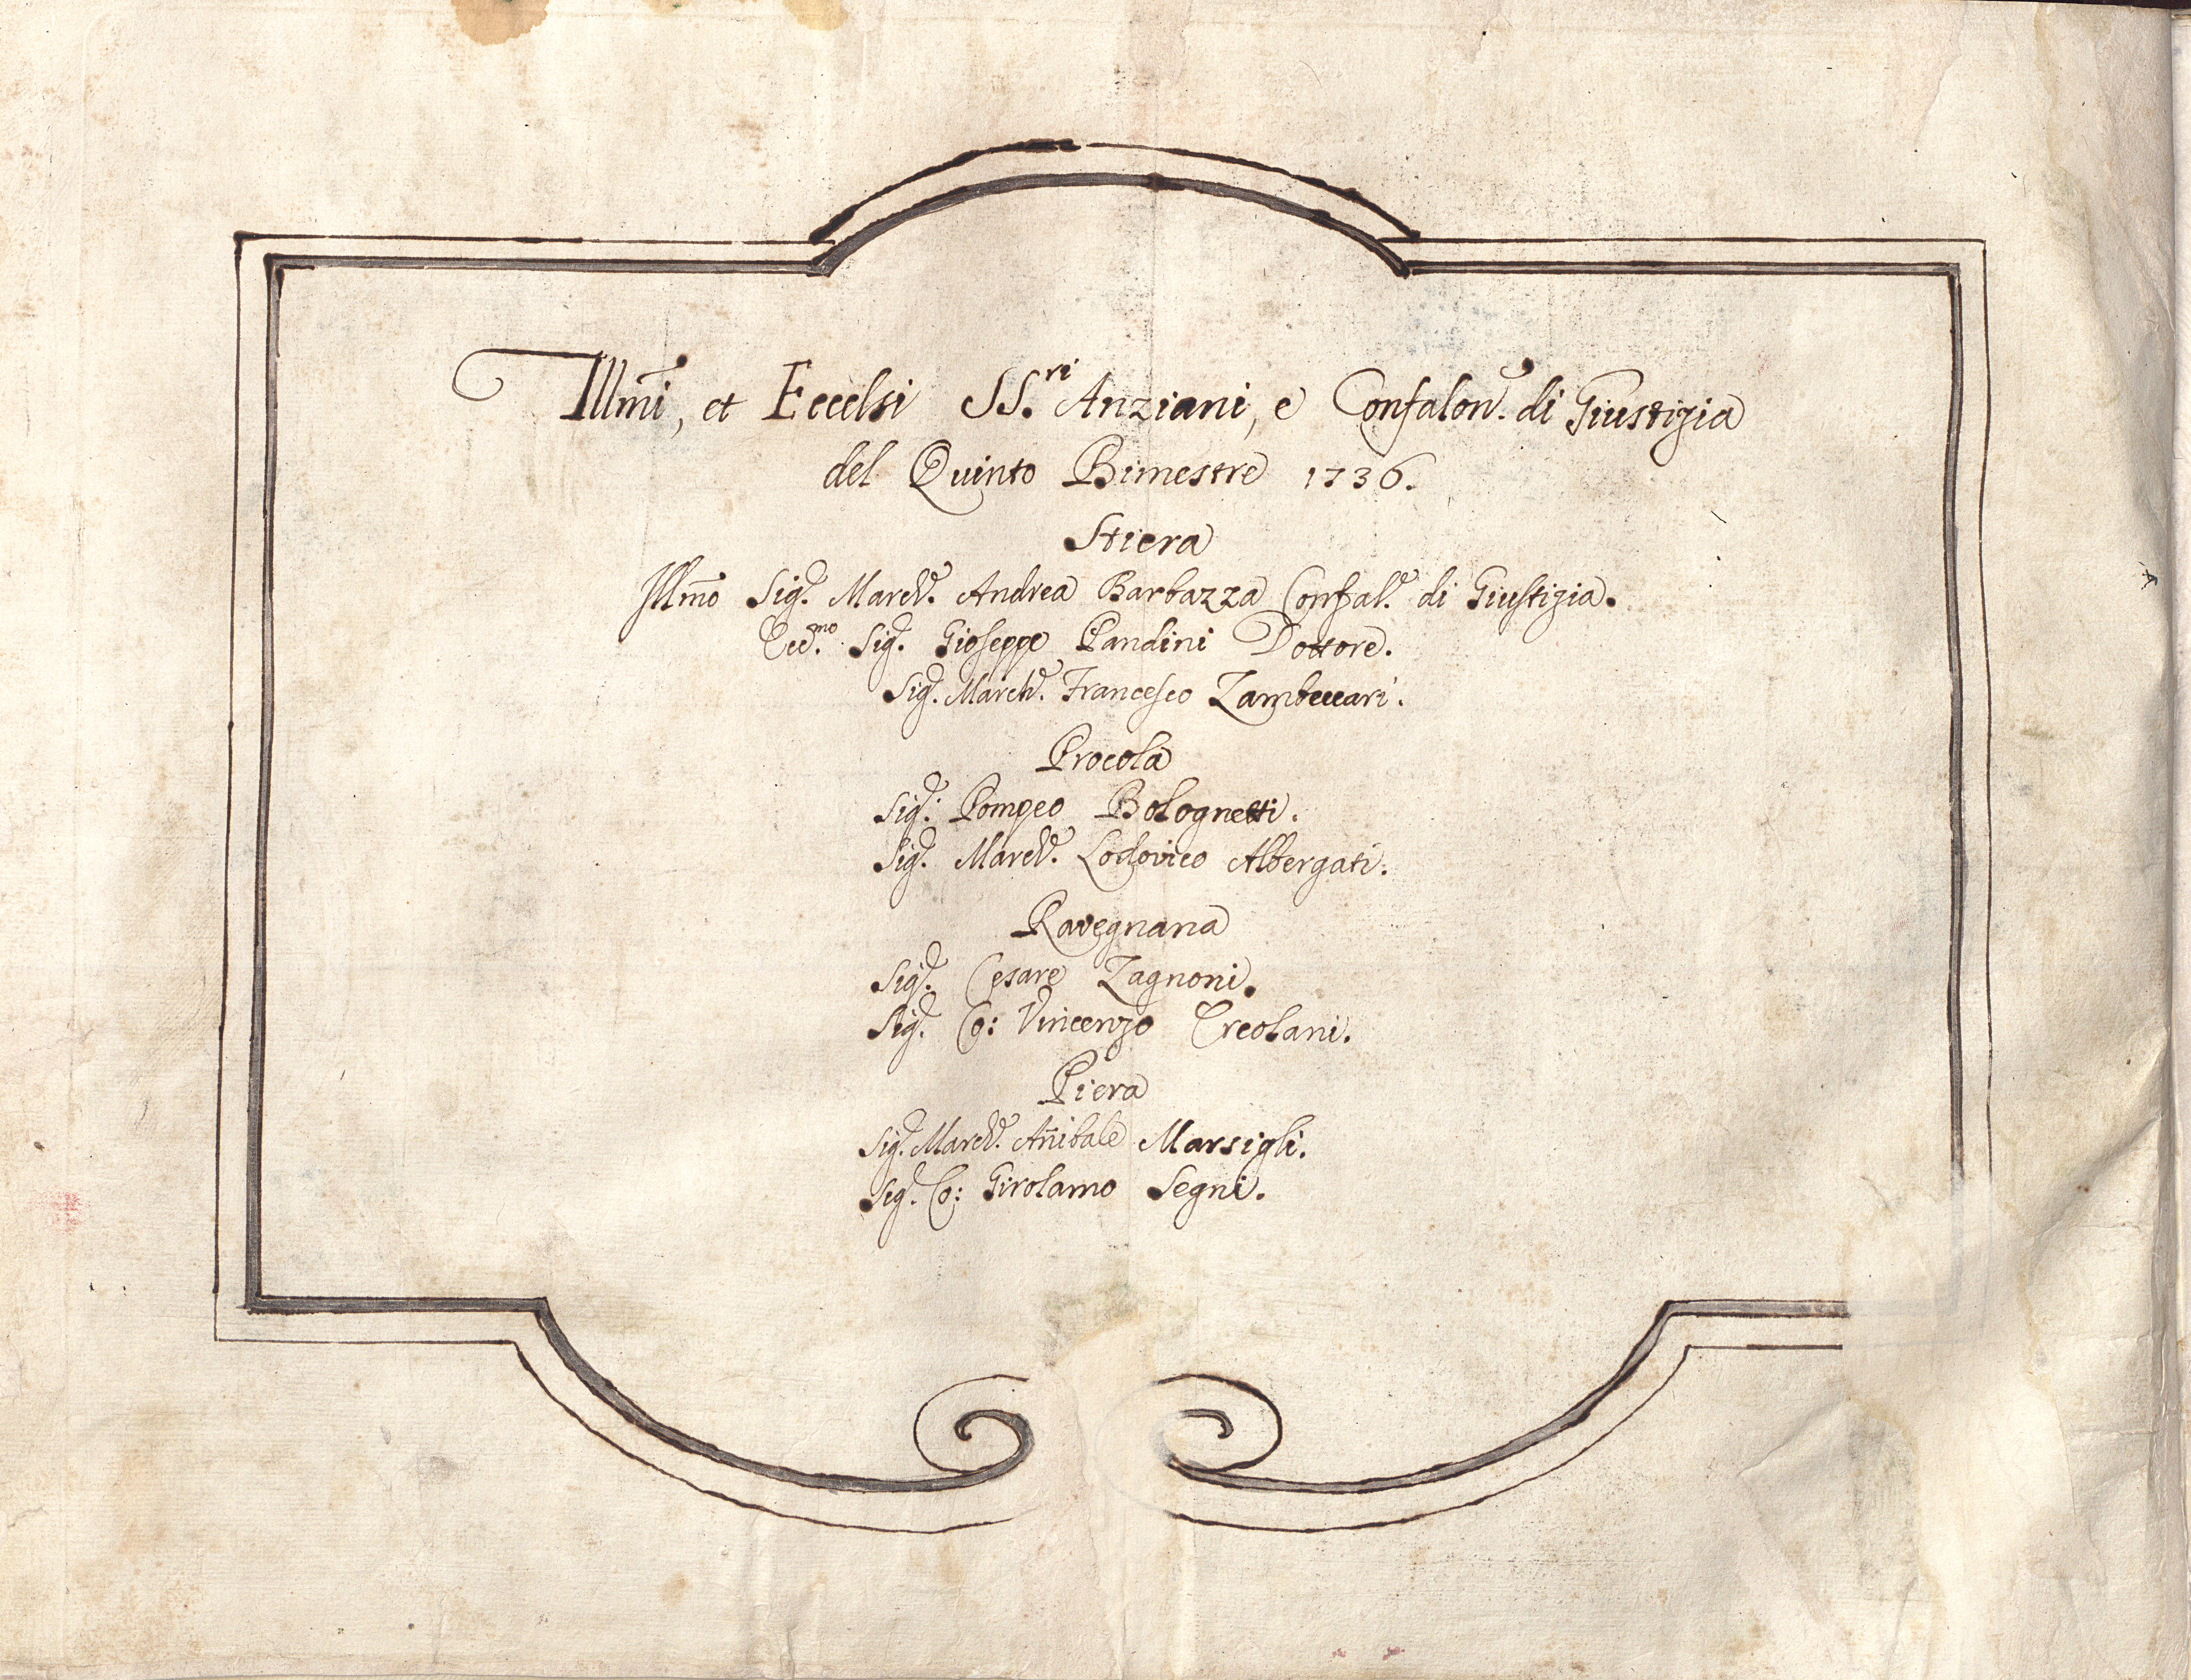 Illm̃i, et Eccelsi SS.ri Anziani, e Confalon.e di Giustizia
del Quinto Bimestre 1736.
Stiera
Illm̃o Sig.e March.e Andrea Barbazza Confal.e di Giustizia.
Ecc.mo Sig.e Gioseppe Pandini Dottore.
Sig.e March.e Francesco Zambeccari.
Procola
Sig.e Pompeo Bolognetti.
Sig.e March.e Lodovico Albergati.
Ravegnana
Sig.e Cesare Zagnoni.
Sig.e Co: Vincenzo Ercolani.
Piera
Sig.e March.e Añibale Marsigli.
Sig.e Co: Girolamo Segni.